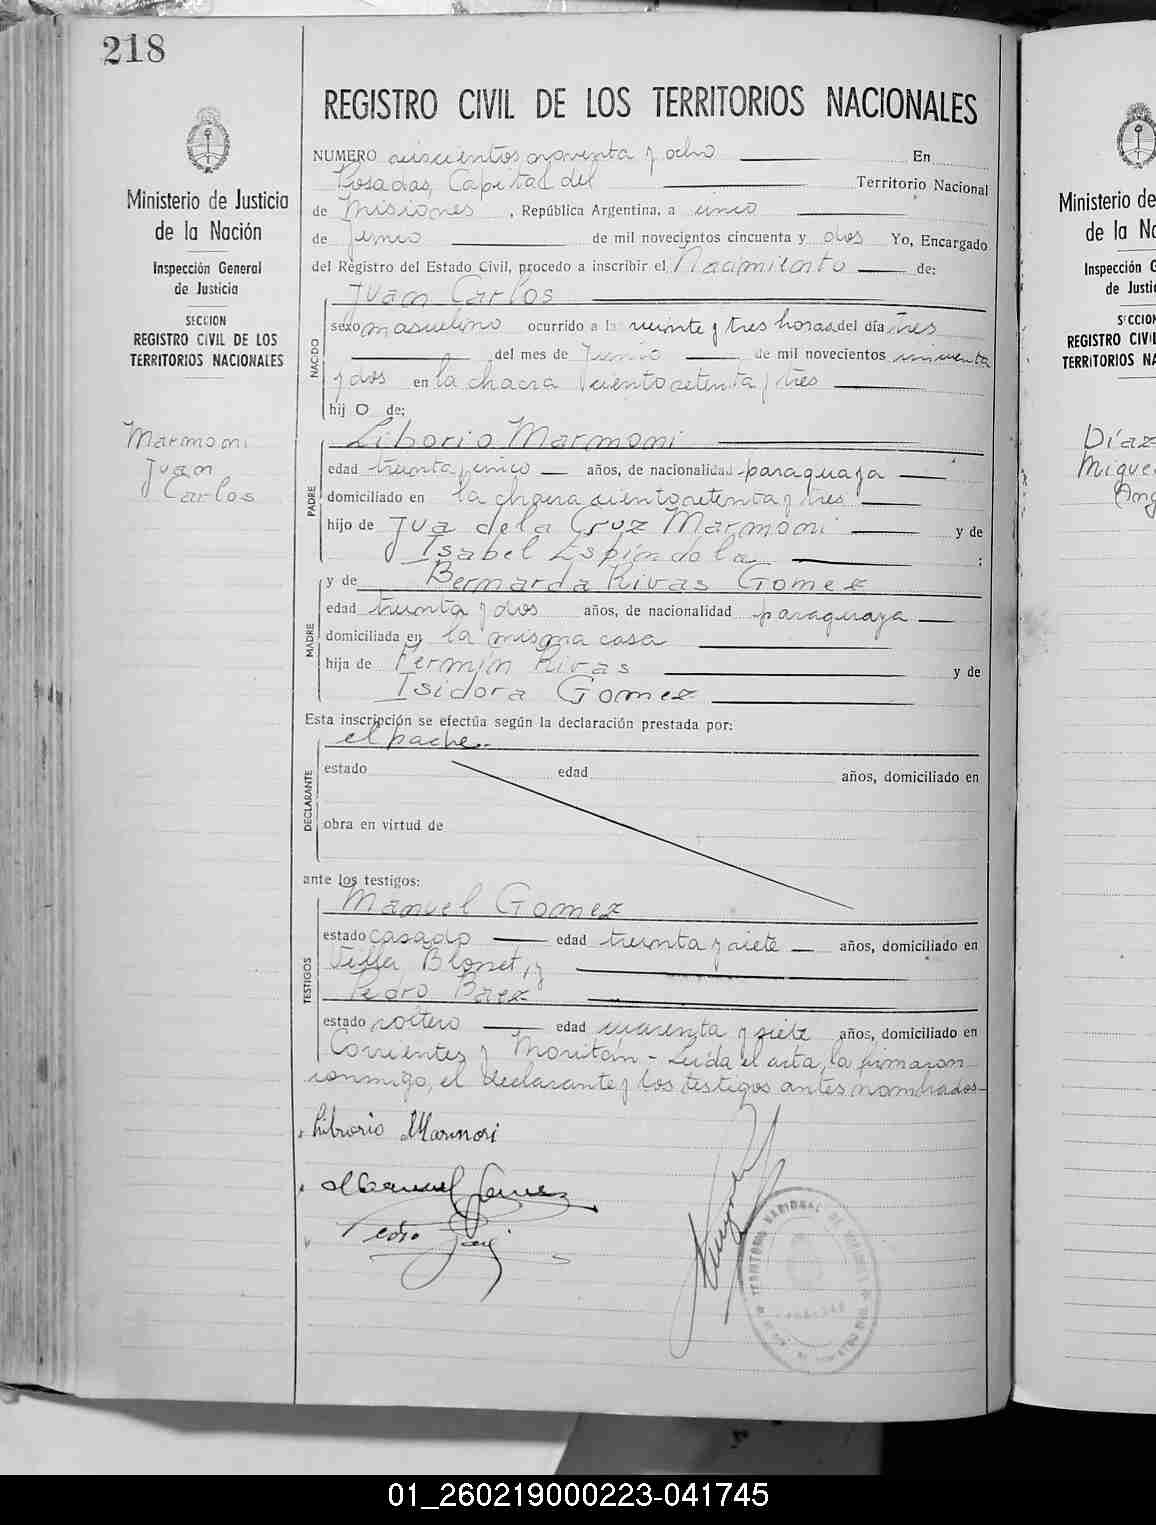 218
REGISTRO CIVIL DE LOS TERRITORIOS NACIONALES
Ministerio de Justicia
de la Nación
Inspección General
de Justicia
SECCION
REGISTRO CIVIL DE LOS
TERRITORIOS NACIONALES
Marmoni
Juan
Carlos
NUMERO seiscientos noventa y ocho En
Posadas, Capital del Territorio Nacional
de Misiones, República Argentina, a cinco
de Junio de mil novecientos cincuenta y dos Yo, Encargado
del Registro del Estado Civil, procedo a inscribir el Nacimiento de:
Juan Carlos
NACIDO
sexo masculino ocurrido a la veinte y tres horas del día tres
del mes de Junio de mil novecientos cincuenta
y dos en la chacra ciento setenta y tres
hij o de:
PADRE
Liborio Marmoni
edad treinta y cinco años, de nacionalidad paraguaya
domiciliado en la chacra ciento setenta y tres
hijo de Jua de la Cruz Marmoni y de
Isabel Espindola ;
MADRE
y de Bernarda Rivas Gomez
edad treinta y dos años, de nacionalidad paraguaya
domiciliada en la misma casa
hija de Fermín Rivas y de
Isidora Gomez
Esta inscripción se efectúa según la declaración prestada por:
DECLARANTE
el padre.
estado edad años, domiciliado en
obra en virtud de
ante los testigos:
TESTIGOS
Manuel Gomez
estado casado edad treinta y siete años, domiciliado en
Villa Blosset, y
Pedro Baez
estado soltero edad cuarenta y siete años, domiciliado en
Corrientes y Moritán - Leida el acta, la firmaron
conmigo, el declarante y los testigos antes nombrados-
Librorio Marmori
Manuel Gomez
Pedro
TERRITORIO NACIONAL DE MISIONES
Ministerio de
de la Na
Inspección G
de Justi
SECCION
REGISTRO CIVIL
TERRITORIOS NA
Díaz
Migue
Ang
01_260219000223-041745